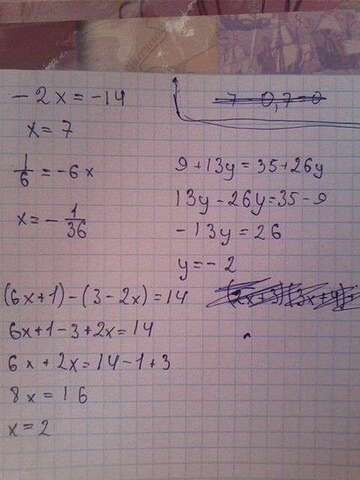 -2x = -14
x = 7
1/6 = -6x
x = -1/36
7 0,7=0
9 + 13y = 35 + 26y
13y - 26y = 35 - 9
-13y = 26
y = -2
(6x+1) - (3-2x) = 14
6x+1-3+2x=14
6x+2x=14-1+3
8x=16
x=2